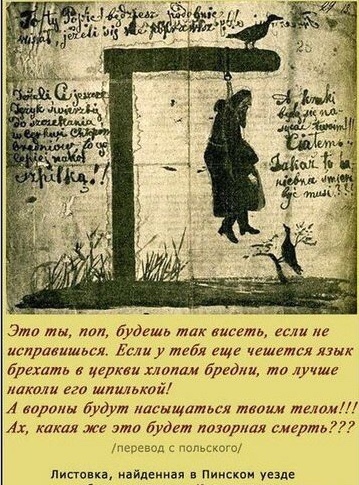 To ty Popie! będziesz podobnie!!
wisiał, jeżeli się nie poprawisz
28
Jeżeli Ci jeszcze
Język świeżbi
do szczekania
w cerkwi Chłopom
bredniow, to go
lepiej nakol
szpilką!!
A kruki
będą się na
sycać twoim!!
Ciałem
Jakaż to ha
niebna śmierć
być musi??
Это ты, поп, будешь так висеть, если не
исправишься. Если у тебя еще чешется язык
брехать в церкви хлопам бредни, то лучше
наколи его шпилькой!
А вороны будут насыщаться твоим телом!!!
Ах, какая же это будет позорная смерть???
/перевод с польского/
Листовка, найденная в Пинском уезде